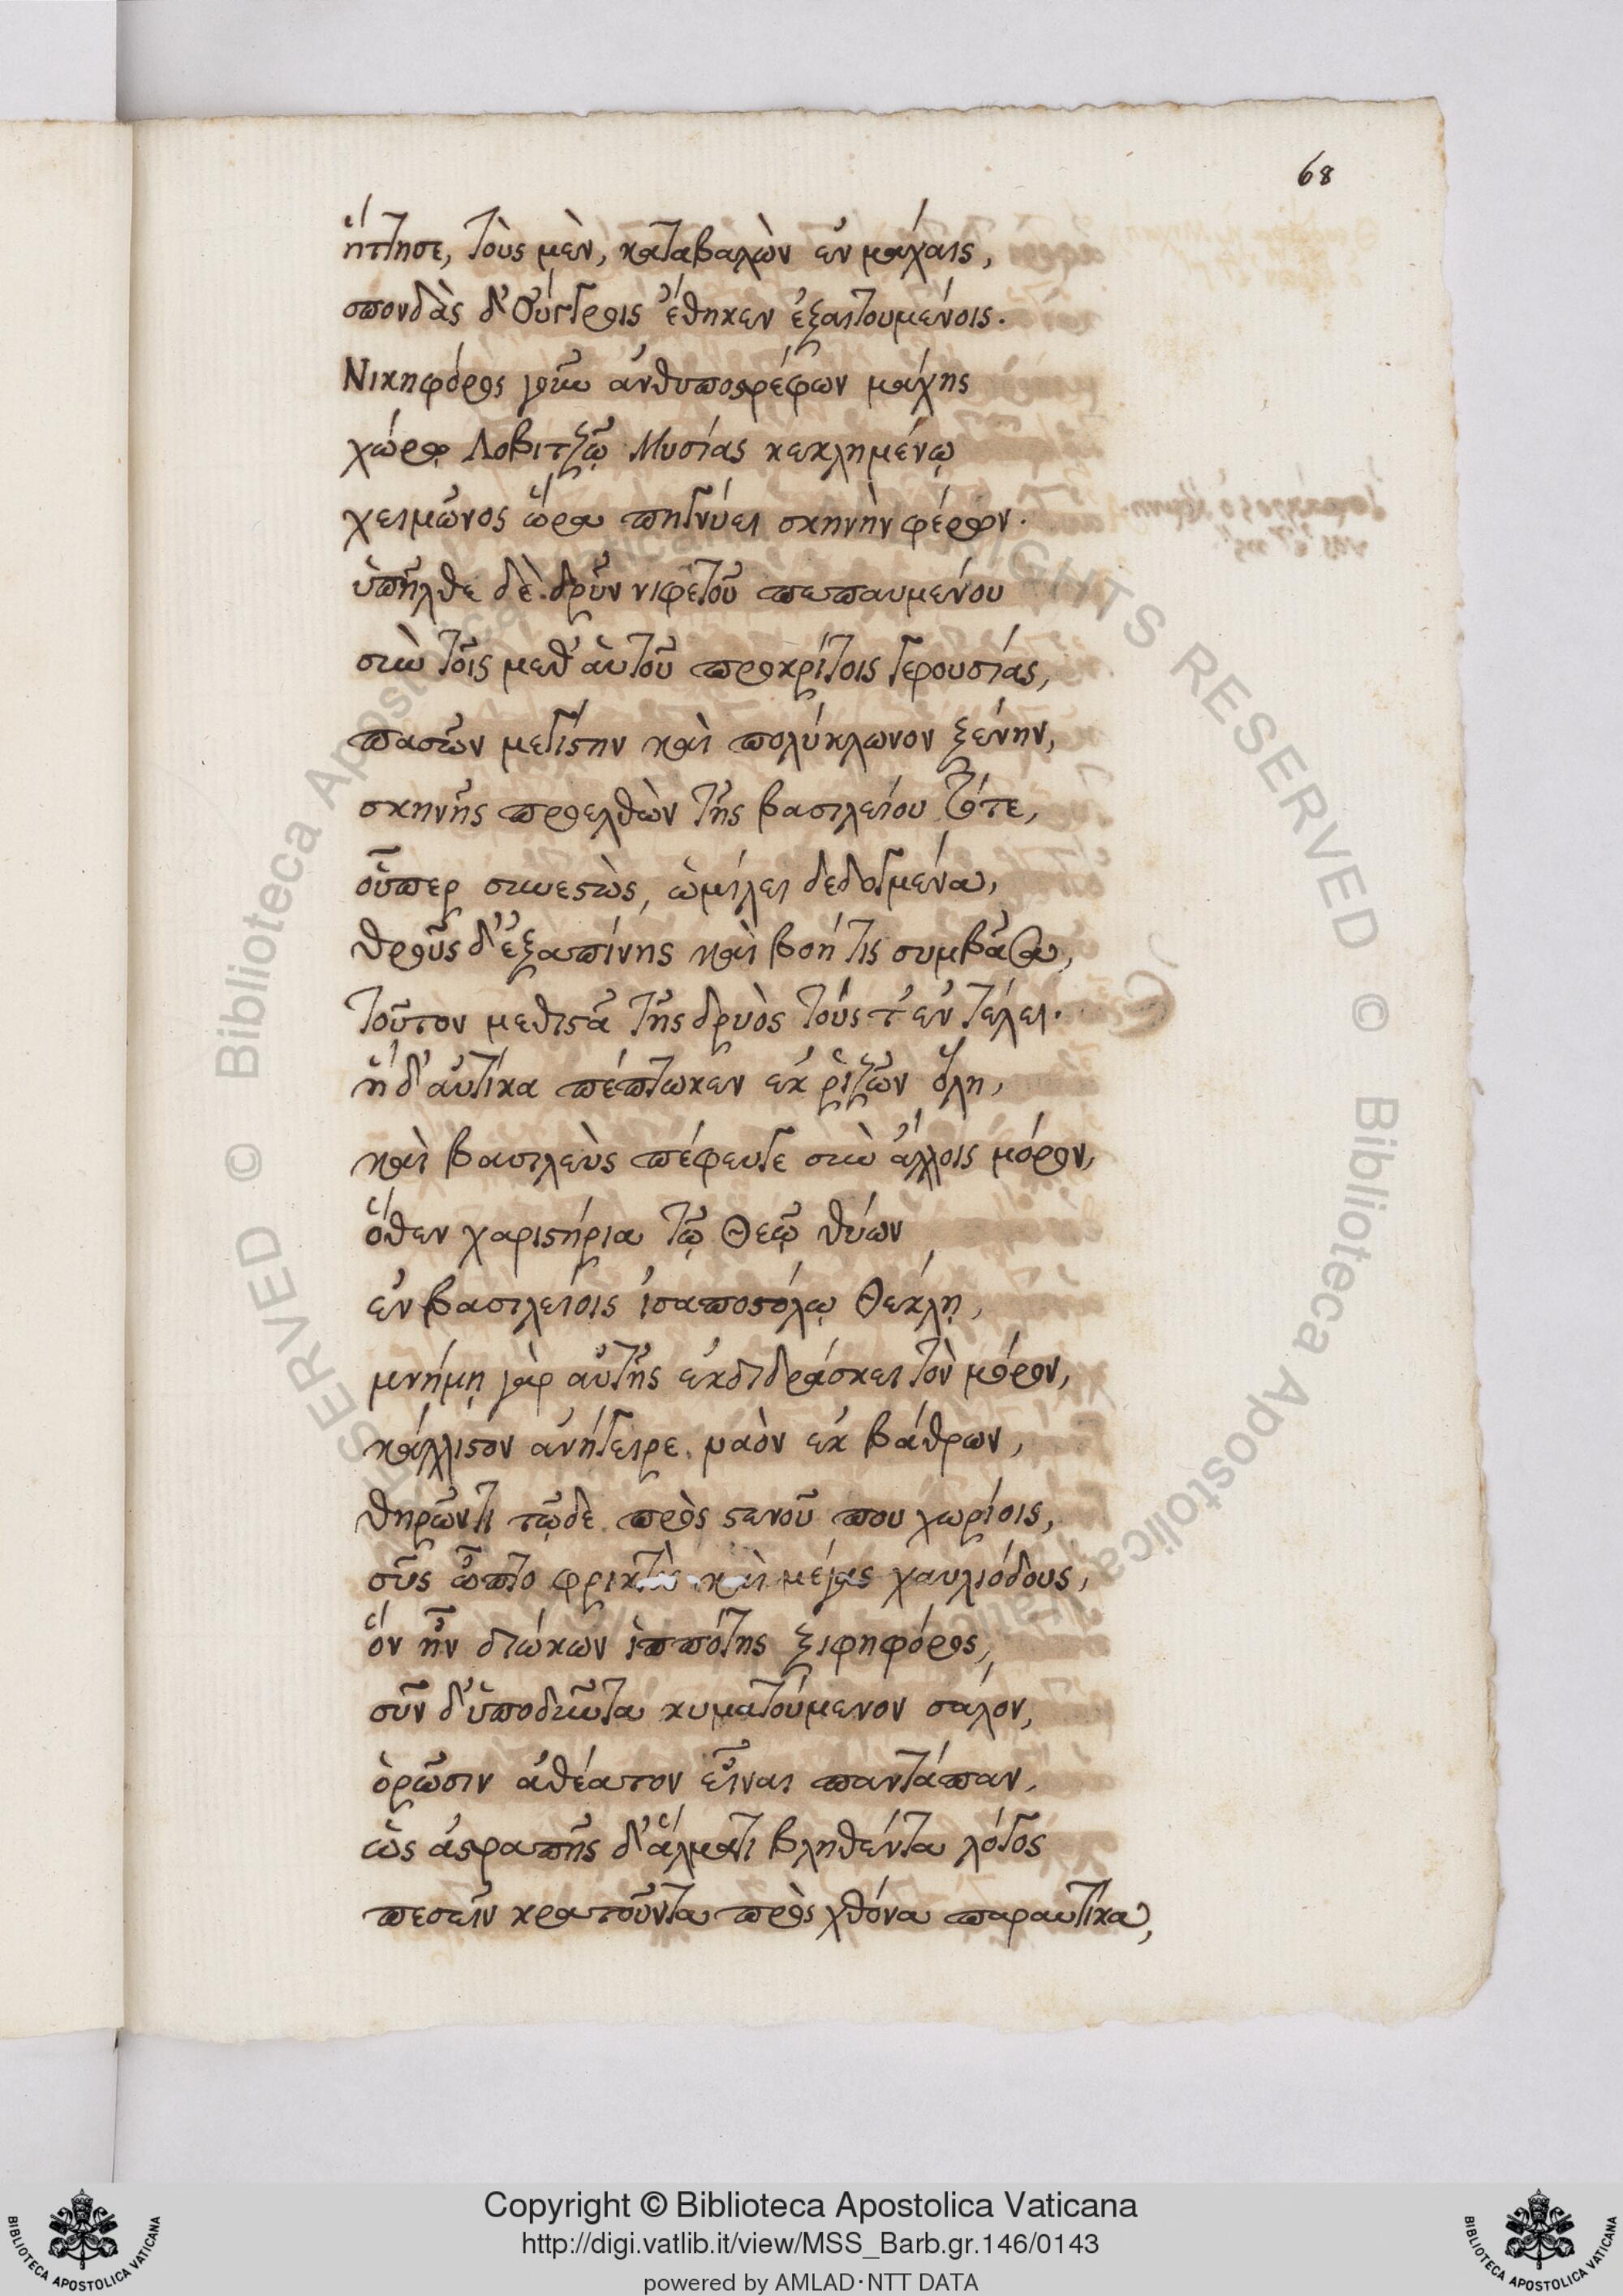 68
ἥττησε, τοὺς μὲν, καταβαλὼν ἐν μάχαις,
σπονδὰς δ' Οὔγγροις ἔθηκεν ἐξαιτουμένοις.
Νικηφόρος γοῦν ἀνθυποστρέφων μάχης
χώρῳ Λοβιτζῷ Μυσίας κεκλημένῳ
χειμῶνος ὥρα πηγνύει σκηνὴν φέρων.
ὑπῆλθε δὲ δρῦν νιφετοῦ πεπαυμένου
σὺν τοῖς μεθ' αὑτοῦ προκρίτοις γερουσίας,
πασῶν μεγίστην καὶ πολύκλωνον ξένην,
σκηνῆς προελθὼν τῆς βασιλείου τότε,
οὗπερ συνεστὼς, ὡμίλει δεδογμένα,
θροῦς δ' ἐξαπίνης καὶ βοή τις συμβᾶσα,
τοῦτον μεθιστᾶ τῆς δρυὸς τούς τ' ἐν τέλει.
ἣ δ' αὐτίκα πέπτωκεν ἐκ ῥιζῶν ὅλη,
καὶ βασιλεὺς πέφευγε σὺν ἄλλοις μόρον,
ὅθεν χαριστήρια τῷ Θεῷ θύων
ἐν βασιλείοις ἰσαποστόλῳ Θέκλῃ,
μνήμῃ γὰρ αὐτῆς ἐκδιδράσκει τὸν μόρον,
κάλλιστον ἀνήγειρε ναὸν ἐκ βάθρων,
θηρῶντι τῷδε πρὸς στενοῦ που χωρίοις,
σῦς ὦπτο φρικτὸς καὶ μέγας χαυλιόδους,
ὃν ἦν διώκων ἱππότης ξιφηφόρος,
σῦν δ' ὑποδιῶτα κυματούμενον σάλον,
ὁρῶσιν ἀθέατον εἶναι παντάπαν,
ὡς ἀστραπῆς δ' ἅλματι βληθέντα λόγος
πεσεῖν κρατοῦντα πρὸς χθόνα παραυτίκα,
Copyright © Biblioteca Apostolica Vaticana
http://digi.vatlib.it/view/MSS_Barb.gr.146/0143
powered by AMLAD·NTT DATA